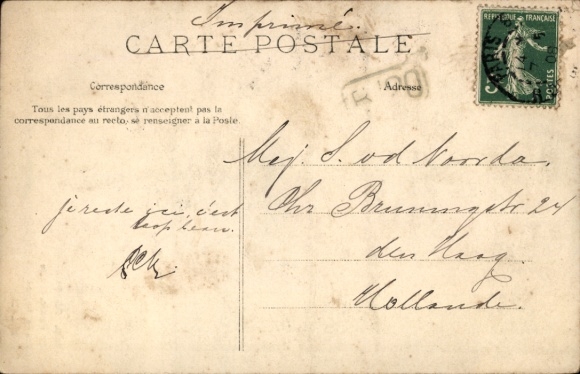 Imprimé.
CARTE POSTALE
Correspondance
Adresse
Tous les pays étrangers n'acceptent pas la
correspondance au recto, se renseigner à la Poste.
REPUBLIQUE FRANÇAISE
POSTES
PARIS
Mej. S. vd Noorda.
Chr Bruningstr 24
den Haag
Hollande.
je reste ici, c'est
trop beau.